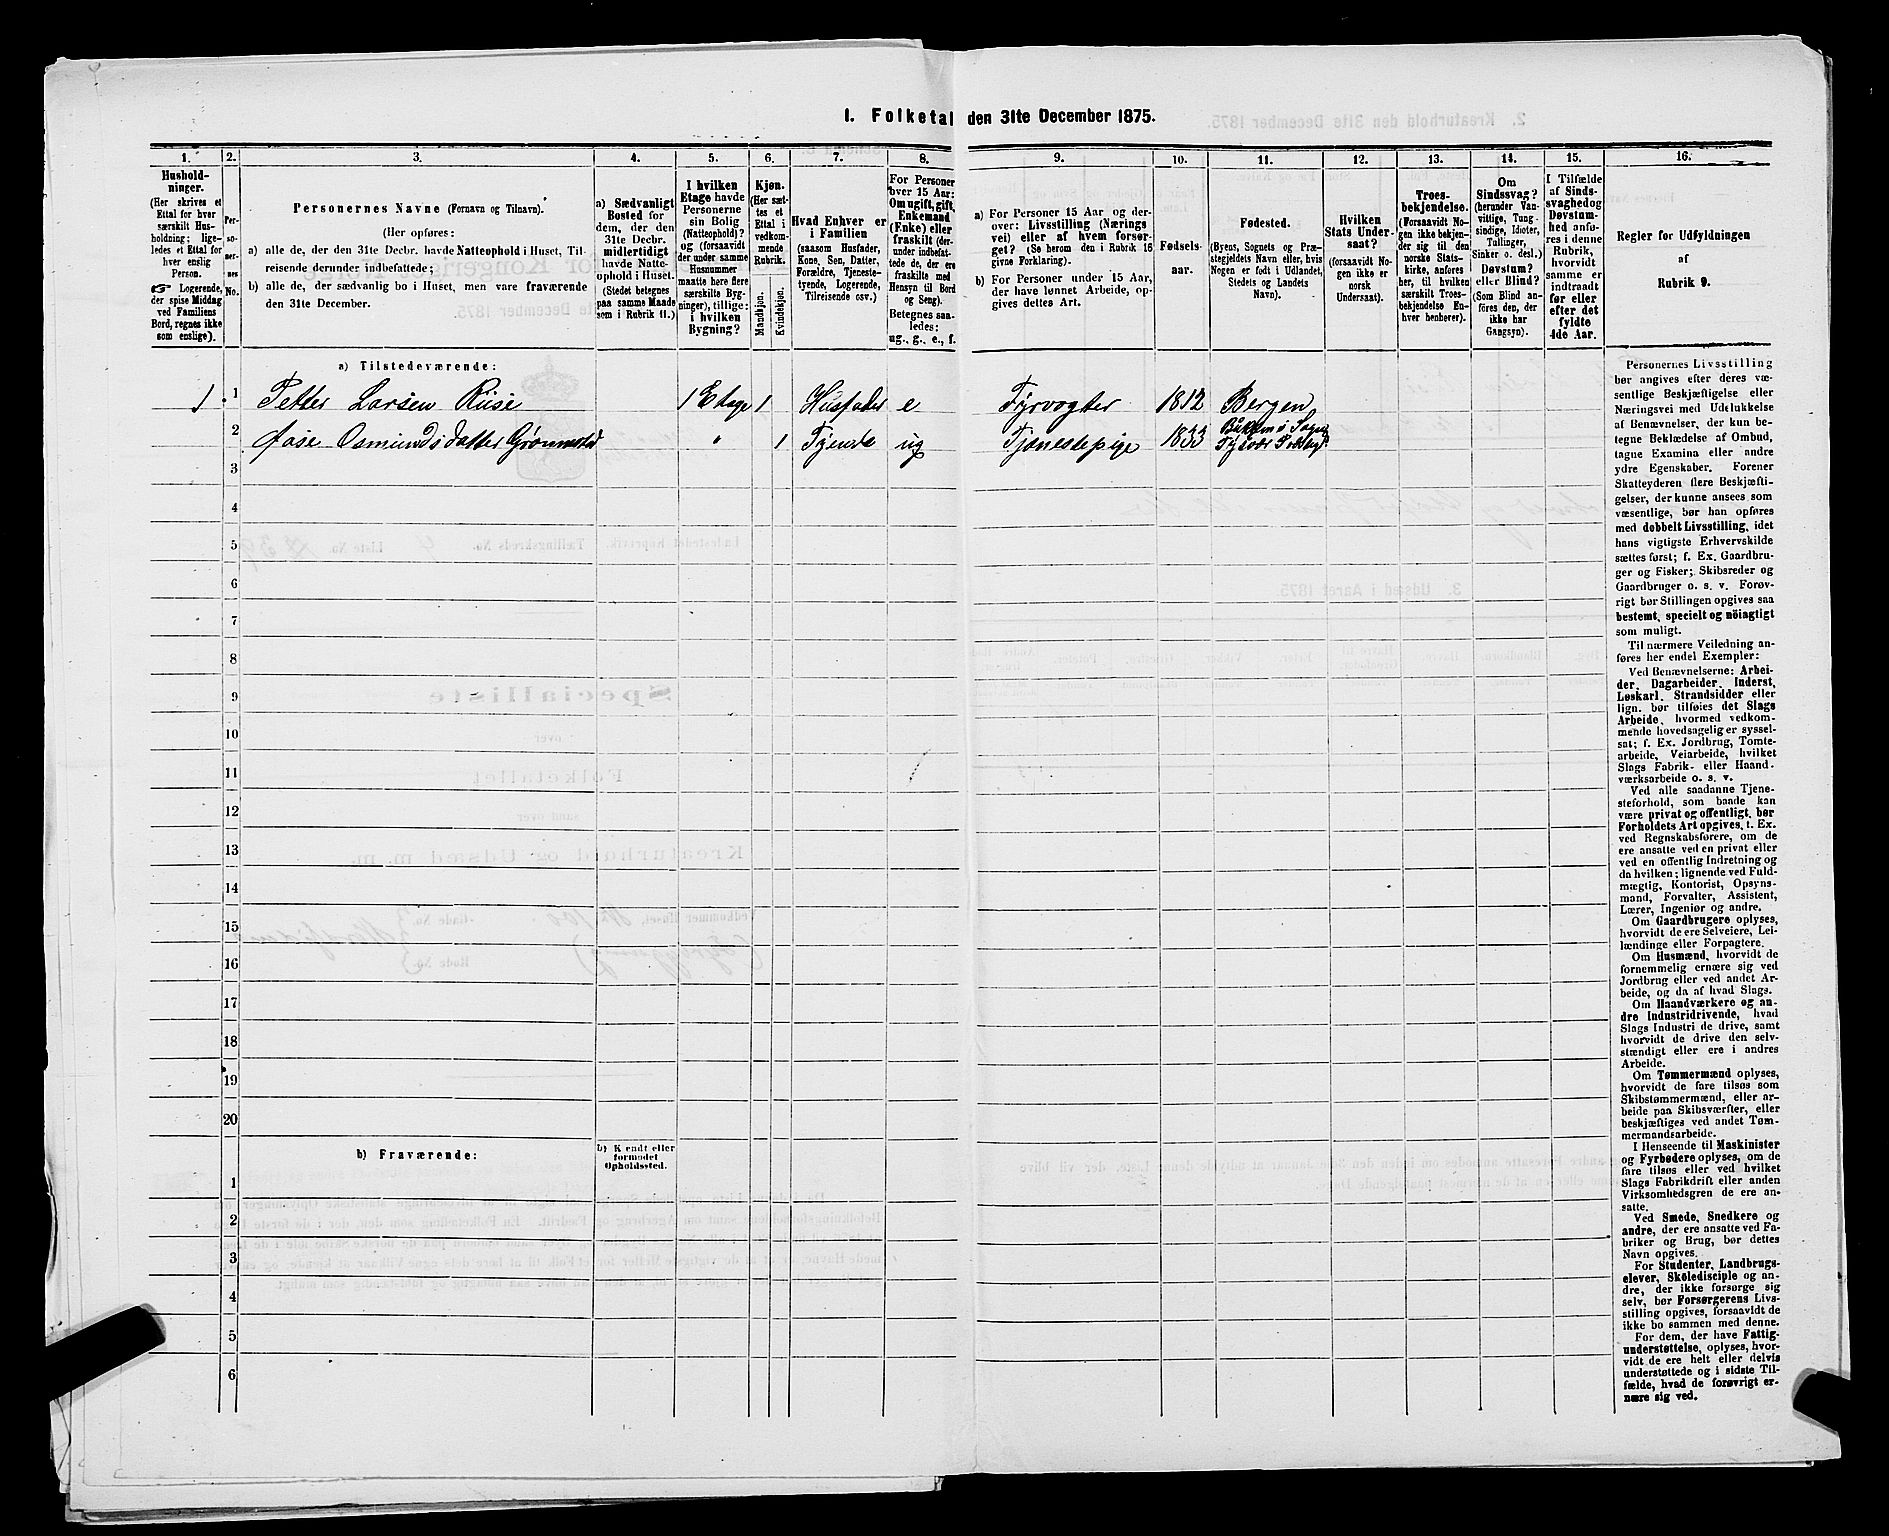 1. Folketal den 31te December 1875.
1. 2. 3. 4. 5. 6. 7. 8. 9. 10. 11. 12. 13. 14. 15. 16.
Hushold-
ninger.
(Her skrives et
Ettal for hver
særskilt Hus-
holdning; lige-
ledes et Ettal for
hver enslig
Person.
☞ Logerende,
der spise Middag
ved Familiens
Bord, regnes ikke
som enslige).
Per-
so-
ner-
nes
No.
Personernes Navne (Fornavn og Tilnavn).
(Her opføres:
a) alle de, der den 31te Decbr. havde Natteophold i Huset, Til-
reisende derunder indbefattede;
b) alle de, der sædvanlig bo i Huset, men vare fraværende
den 31te December.
a) Sædvanligt
Bosted for
dem, der den
31te Decbr.
midlertidigt
havde Natte-
ophold i Huset.
(Stedet betegnes
paa samme Maade
som i Rubrik 11.)
I hvilken
Etage havde
Personerne
sin Bolig
(Natteophold)?
og (forsaavidt
der under samme
Husnummer
maatte høre flere
særskilte Byg-
ninger), tillige:
i hvilken
Bygning?
Kjøn.
(Her sæt-
tes et
Ettal i
vedkom-
mende
Rubrik.
Mandkjøn.
Kvindekjøn.
Hvad Enhver er
i Familien
(saasom Husfader,
Kone, Søn, Datter,
Forældre, Tjeneste-
tyende, Logerende,
Tilreisende osv.)
For Personer
over 15 Aar:
Om ugift, gift,
Enkemand
(Enke) eller
fraskilt (der-
under indbefat-
tede de, der ere
fraskilte med
Hensyn til Bord
og Seng).
Betegnes saa-
ledes:
ug., g., e., f.
a) For Personer 15 Aar og der-
over: Livsstilling (Nærings
vei) eller af hvem forsør-
get? (Se herom den i Rubrik 16
givne Forklaring).
b) For Personer under 15 Aar,
der have lønnet Arbeide, op-
gives dettes Art.
Fødsels-
aar.
Fødested.
(Byens, Sognets og Præ-
stegjeldets Navn eller, hvis
Nogen er født i Udlandet,
Stedets og Landets
Navn).
Hvilken
Stats Under-
saat?
(forsaavidt No-
gen ikke er
norsk
Undersaat).
Troes-
bekjendelse.
(Forsaavidt No-
gen ikke bekjen-
der sig til den
norske Stats-
kirke, anføres
her, til hvilken
særskilt Troes-
bekjendelse En-
hver henhører).
Om
Sindssvag?
(herunder Van-
vittige, Tung-
sindige, Idioter,
Tullinger,
Sinker o. desl.)
Døvstum?
eller Blind?
(Som Blind an-
føres den, der
ikke har
Gangsyn).
I Tilfælde
af Sinds-
svaghed og
Døvstum-
hed anfø-
res i denne
Rubrik,
hvorvidt
samme er
indtraadt
før eller
efter det
fyldte
4de Aar.
Regler for Udfyldningen
af
Rubrik 9.
a) Tilstedeværende:
1 1 Petter Larsen Riise 1 Etage 1 Husfader e Fyrvogter 1812 Bergen
2 Aase Osmundsdatter Grønnestad " 1 Tyende ug Tjenestepige 1833 Bukkenø Sogn
Tysvær
3
4
5
6
7
8
9
10
11
12
13
14
15
16
17
18
19
20
b) Fraværende:
b) Kendt eller
formodet
Opholdssted.
1
2
3
4
5
6
Personernes Livsstilling
bør angives efter deres væ-
sentlige Beskjæftigelse eller
Næringsvei med Udelukkelse
af Benævnelser, der kun be-
tegne Beklædelse af Ombud,
tagne Examina eller andre
ydre Egenskaber. Forener
Skatteyderen flere Beskjæfti-
gelser, der kunne ansees som
væsentlige, bør han opføres
med dobbelt Livsstilling, idet
hans vigtigste Erhvervskilde
sættes først; f. Ex. Gaardbru-
ger og Fisker; Skibsreder og
Gaardbruger o. s. v. Forøv-
rigt bør Stillingen opgives saa
bestemt, specielt og nöiagtigt
som muligt.
Til nærmere Veiledning an-
føres her endel Exempler:
Ved Benævnelserne: Arbei-
der, Dagarbeider, Inderst,
Løskarl, Strandsidder eller
lign. bør tilføies det Slags
Arbeide, hvormed vedkom-
mende hovedsagelig er syssel-
sat; f. Ex. Jordbrug, Tomte-
arbeide, Veiarbeide, hvilket
Slags Fabrik- eller Haand-
værksarbeide o. s. v.
Ved alle saadanne Tjene-
steforhold, som baade kan
være privat og offentligt, bør
Forholdets Art opgives, t. Ex.
ved Regnskabsførere, om de
ere ansatte ved en privat eller
ved en offentlig Indretning og
da hvilken; lignende ved Fuld-
mægtig, Kontorist, Opsyns-
mand, Forvalter, Assistent,
Lærer, Ingeniør og andre.
Om Gaardbrugere oplyses,
hvorvidt de ere Selveiere, Lei-
lændinge eller Forpagtere.
Om Husmænd, hvorvidt de
fornemmelig ernære sig ved
Jordbrug eller ved andet Ar-
beide, og da af hvad Slags.
Om Haandværkere og an-
dre Industridrivende, hvad
Slags Industri de drive, samt
hvorvidt de drive den selv-
stændigt eller ere i andres
Arbeide.
Om Tømmermænd oplyses,
hvorvidt de fare tilsøs som
Skibstømmermænd, eller ar-
beide paa Skibsværfter, eller
beskjæftiges ved andet Tøm-
mermandsarbeide.
I Henseende til Maskinister
og Fyrbødere oplyses, om de
fare tilsøs eller ved hvilket
Slags Fabrikdrift eller anden
Virksomhedsgren de ere an-
satte.
Ved Smede, Snedkere og
andre, der ere ansatte ved Fa-
briker og Brug, bør dettes
Navn opgives.
For Studenter, Landbrugs-
elever, Skoledisciple og an-
dre, der ikke forsørge sig
selv, bør Forsørgerens Livs-
stilling opgives, forsaavidt de
ikke bo sammen med denne.
For dem, der have Fattig-
understøttelse, oplyses, hvor-
vidt de ere helt eller delvis
understøttede og i sidste Til-
fælde, hvad de forøvrigt er-
nære sig ved.